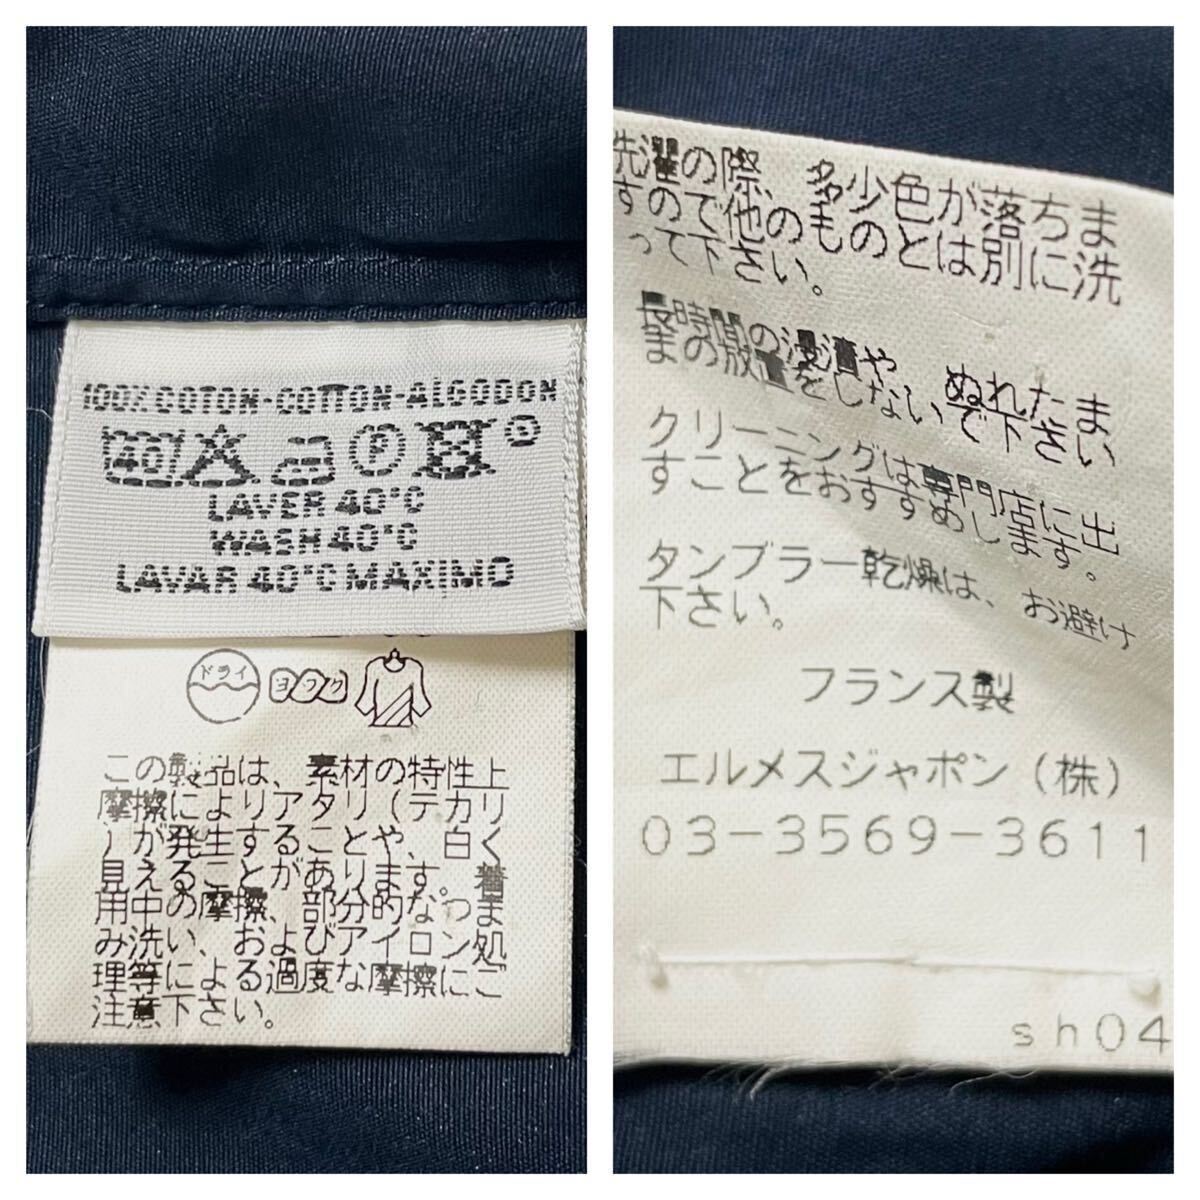 100% COTON-COTTON-ALGODON
40 P
LAVER 40°C
WASH 40°C
LAVAR 40°C MAXIMO
ドライ ヨワク
この製品は、素材の特性上
摩擦によりアタリ(テカリ
)が発生することや、白く
見えることがあります。着
用中の摩擦、部分的なつま
み洗い、およびアイロン処
理等による過度な摩擦にご
注意下さい。
洗濯の際、多少色が落ちま
すので他のものとは別に洗
って下さい。
長時間の浸漬や、ぬれたま
まの放置をしないで下さい
クリーニングは専門店に出
すことをおすすめします。
タンブラー乾燥は、お避け
下さい。
フランス製
エルメスジャポン(株)
03-3569-3611
sh04